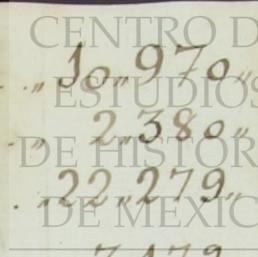 CENTRO D
„ 10„970„
ESTUDIOS
„ 2„380„
DE HISTOR
„22„279„
DE MEXIC